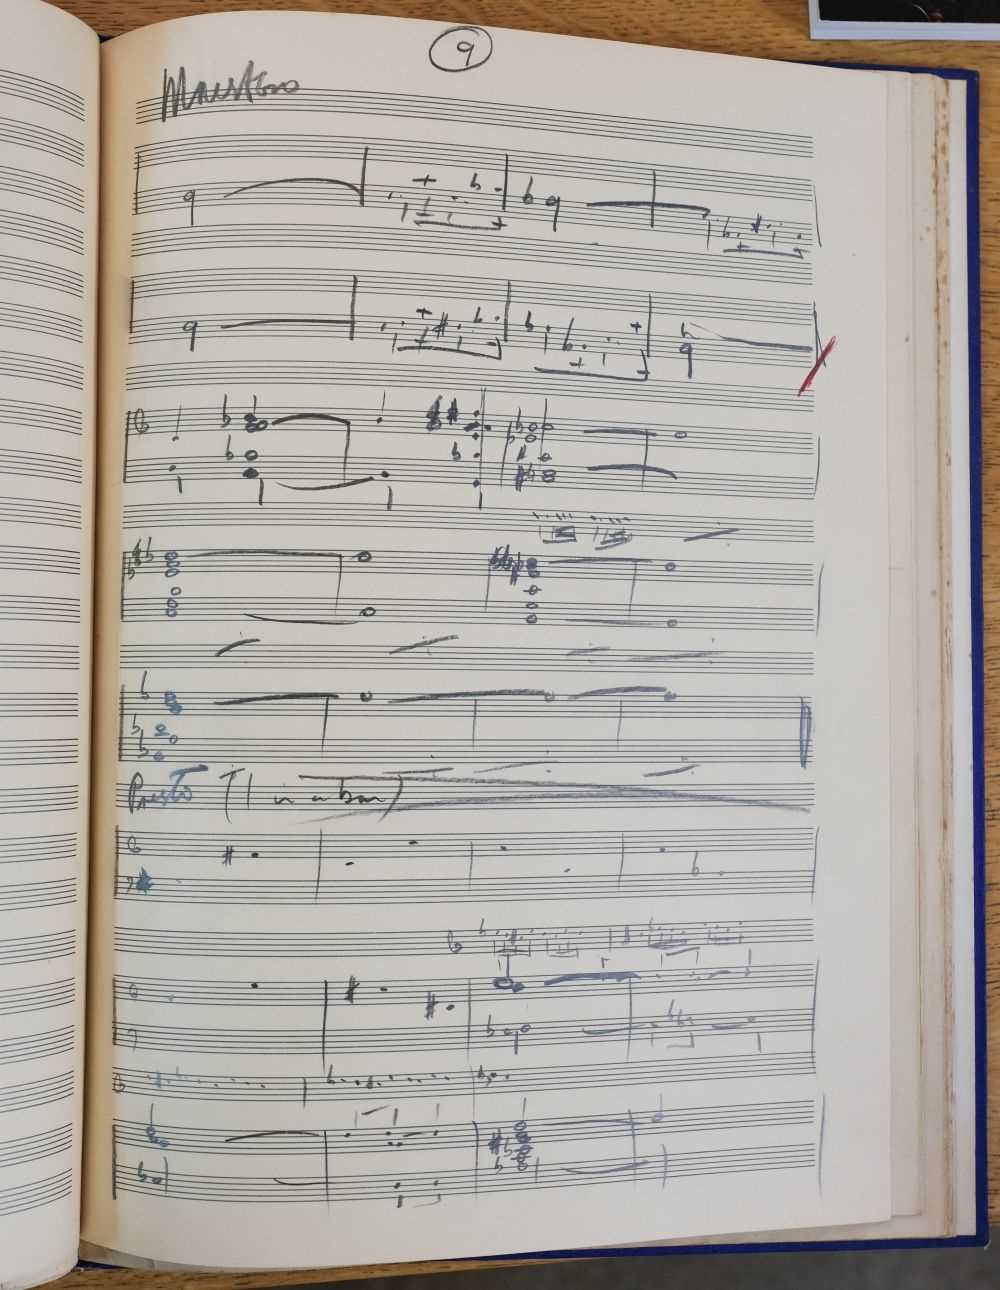 9
Maestoso
Presto (1 in a bar)